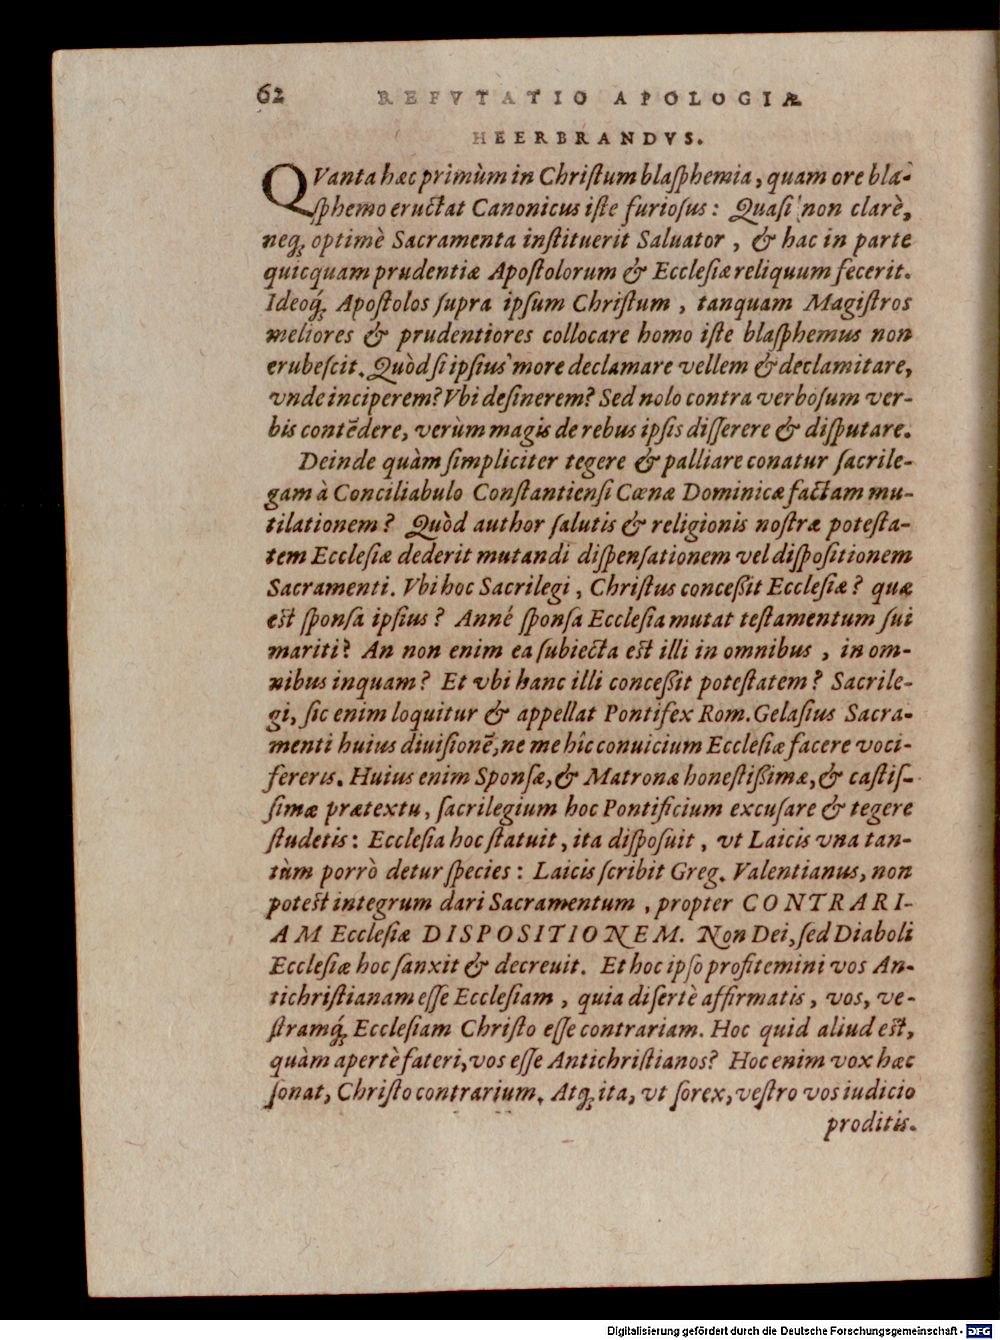 62 REFVTATIO APOLOGIÆ
HEERBRANDVS.
QVanta hæc primùm in Chriſtum blaſphemia, quam ore bla-
ſphemo eructat Canonicus iſte furioſus: Quaſi non clarè,
neq; optimè Sacramenta inſtituerit Saluator, & hac in parte
quicquam prudentiæ Apoſtolorum & Eccleſiæ reliquum fecerit.
Ideoq́; Apoſtolos ſupra ipſum Chriſtum, tanquam Magiſtros
meliores & prudentiores collocare homo iſte blaſphemus non
erubeſcit. Quòd ſi ipſius more declamare vellem & declamitare,
vnde inciperem? Vbi deſinerem? Sed nolo contra verboſum ver-
bis contēdere, verùm magis de rebus ipſis diſſerere & diſputare.
Deinde quàm ſimpliciter tegere & palliare conatur ſacrile-
gam à Conciliabulo Conſtantienſi Cœnæ Dominicæ factam mu-
tilationem? Quòd author ſalutis & religionis noſtræ poteſta-
tem Eccleſiæ dederit mutandi diſpenſationem vel diſpoſitionem
Sacramenti. Vbi hoc Sacrilegi, Chriſtus conceßit Eccleſiæ? quæ
eſt ſponſa ipſius? Anné ſponſa Eccleſia mutat teſtamentum ſui
mariti? An non enim ea ſubiecta eſt illi in omnibus, in om-
nibus inquam? Et vbi hanc illi conceßit poteſtatem? Sacrile-
gi, ſic enim loquitur & appellat Pontifex Rom. Gelaſius Sacra-
menti huius diuiſionē, ne me hîc conuicium Eccleſiæ facere voci-
fereris. Huius enim Sponſæ, & Matronæ honeſtißimæ, & caſtiſ-
ſimæ prætextu, ſacrilegium hoc Pontificium excuſare & tegere
ſtudetis: Eccleſia hoc ſtatuit, ita diſpoſuit, vt Laicis vna tan-
tùm porrò detur ſpecies: Laicis ſcribit Greg. Valentianus, non
poteſt integrum dari Sacramentum, propter CONTRARI-
AM Eccleſiæ DISPOSITIONEM. Non Dei, ſed Diaboli
Eccleſiæ hoc ſanxit & decreuit. Et hoc ipſo profitemini vos An-
tichriſtianam eſſe Eccleſiam, quia diſertè affirmatis, vos, ve-
ſtramq́; Eccleſiam Chriſto eſſe contrariam. Hoc quid aliud eſt,
quàm apertè fateri, vos eſſe Antichriſtianos? Hoc enim vox hæc
ſonat, Chriſto contrarium. Atq; ita, vt ſorex, veſtro vos iudicio
proditis.
Digitalisierung gefördert durch die Deutsche Forschungsgemeinschaft - DFG